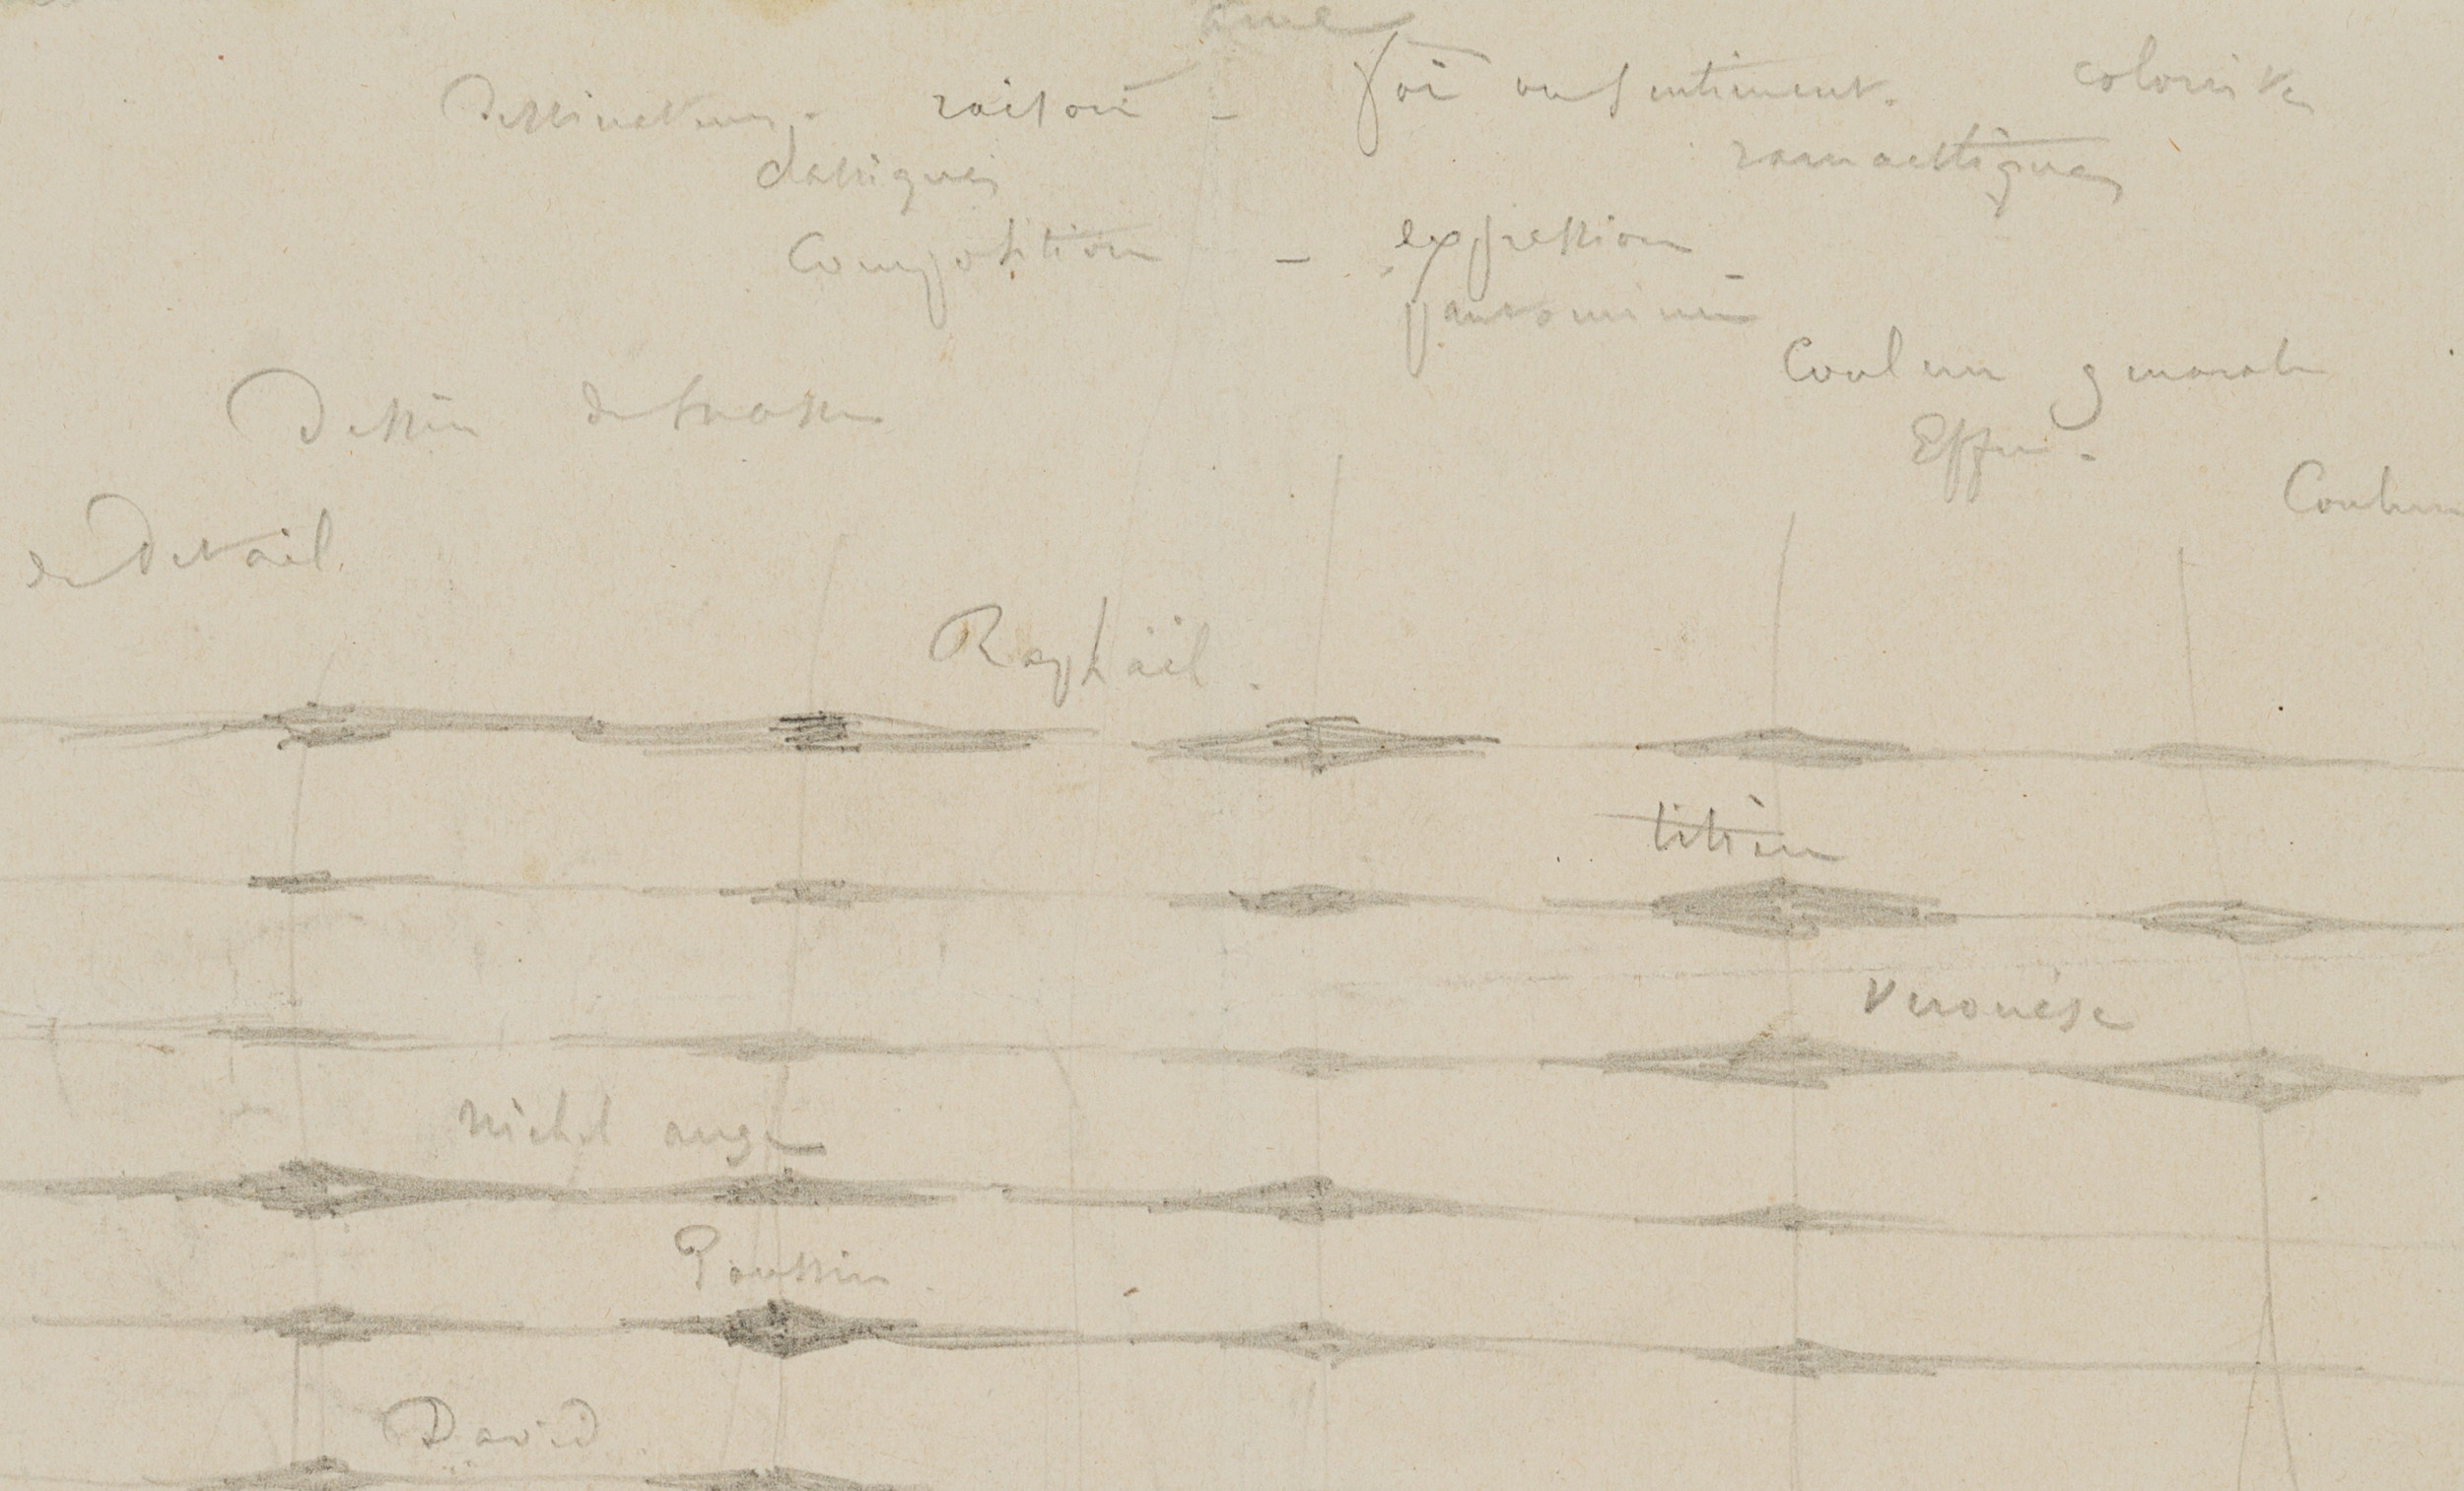 Dessinateurs. raison - foi ou sentiment. coloristes
classiques romantiques
Composition - expression -
pantomime
Couleur generale
Dessin de masse
Effet.
Couleur
de Detail.
Raphäel.
titien
Veronése
Michel ange
Poussin
David